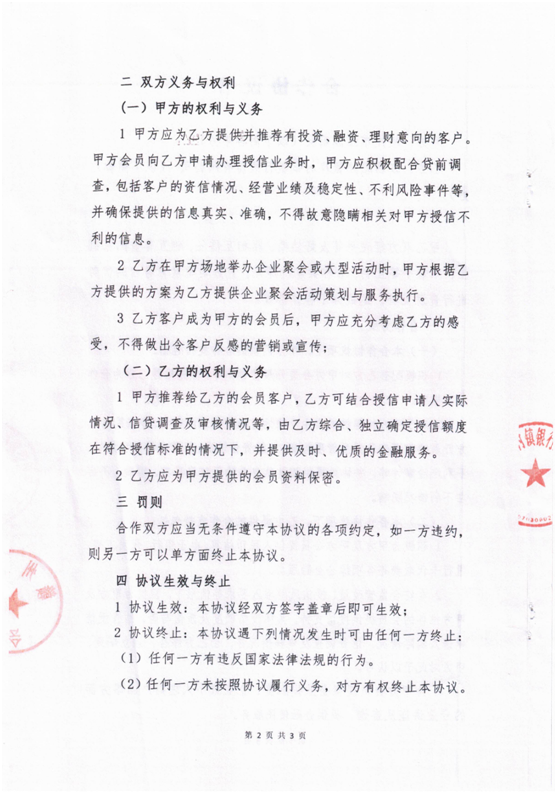 二 双方义务与权利
(一)甲方的权利与义务
1 甲方应为乙方提供并推荐有投资、融资、理财意向的客户。
甲方会员向乙方申请办理授信业务时，甲方应积极配合贷前调
查，包括客户的资信情况、经营业绩及稳定性、不利风险事件等，
并确保提供的信息真实、准确，不得故意隐瞒相关对甲方授信不
利的信息。
2 乙方在甲方场地举办企业聚会或大型活动时，甲方根据乙
方提供的方案为乙方提供企业聚会活动策划与服务执行。
3 乙方客户成为甲方的会员后，甲方应充分考虑乙方的感
受，不得做出令客户反感的营销或宣传；
(二)乙方的权利与义务
1 甲方推荐给乙方的会员客户，乙方可结合授信申请人实际
情况、信贷调查及审核情况等，由乙方综合、独立确定授信额度
在符合授信标准的情况下，并提供及时、优质的金融服务。
2 乙方应为甲方提供的会员资料保密。
三 罚则
合作双方应当无条件遵守本协议的各项约定，如一方违约，
则另一方可以单方面终止本协议。
四 协议生效与终止
1 协议生效：本协议经双方签字盖章后即可生效；
2 协议终止：本协议遇下列情况发生时可由任何一方终止：
(1)任何一方有违反国家法律法规的行为。
(2)任何一方未按照协议履行义务，对方有权终止本协议。
第 2 页 共 3 页
镇银行